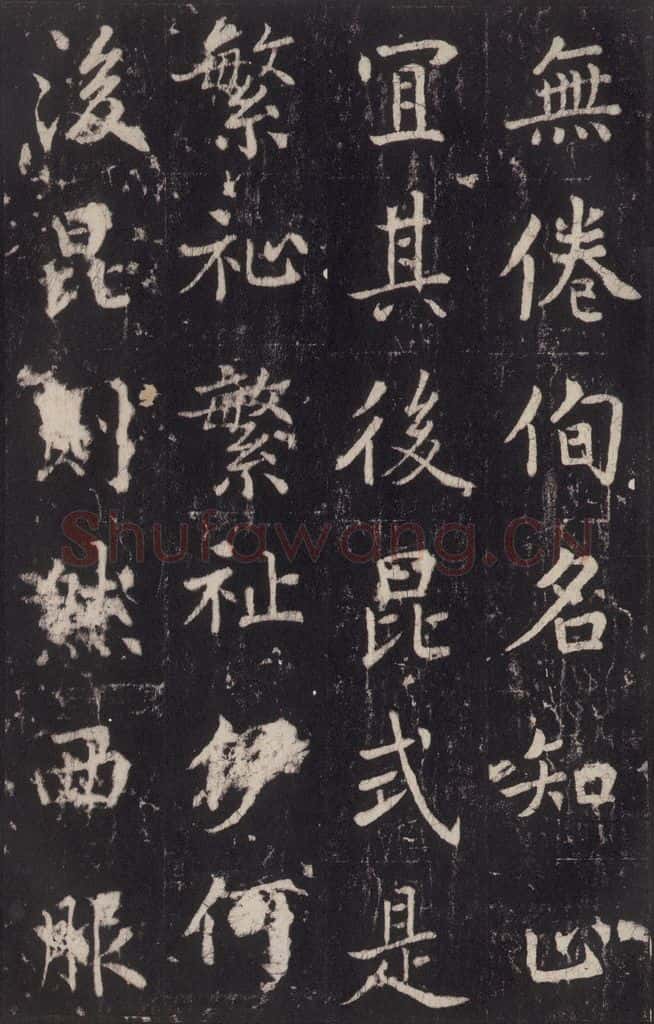 無倦侚名知止
宜其後昆式是
繁祉繁祉伊何
後昆則然西服
Shufawang.CN